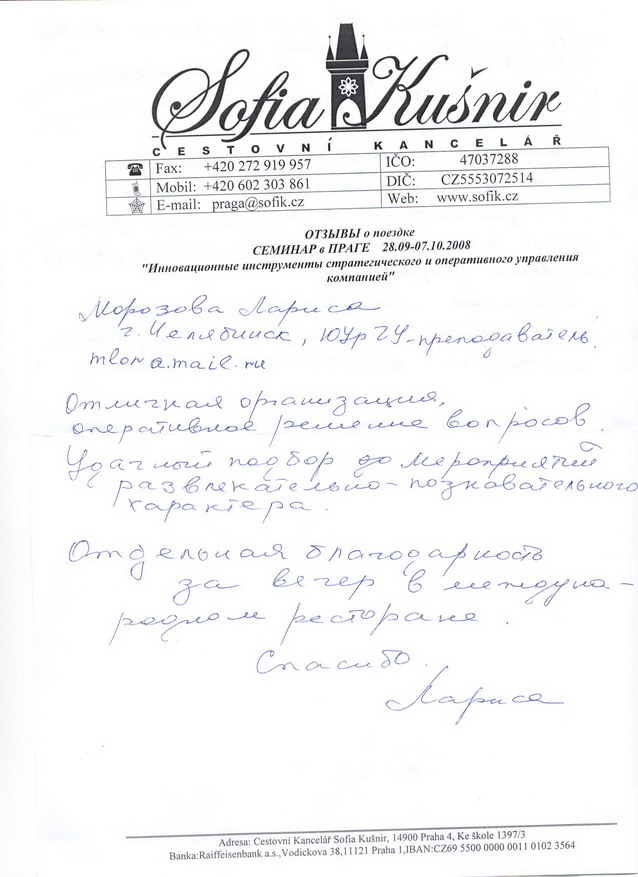 Sofia Kušnir
CESTOVNÍ KANCELÁŘ
Fax: +420 272 919 957 IČO: 47037288
Mobil: +420 602 303 861 DIČ: CZ5553072514
E-mail: praga@sofik.cz Web: www.sofik.cz
ОТЗЫВЫ о поездке
СЕМИНАР в ПРАГЕ 28.09-07.10.2008
"Инновационные инструменты стратегического и оперативного управления
компанией"
Морозова Лариса
г. Челябинск, ЮУрГУ-преподаватель.
mlor@mail.ru
Отличная организация,
оперативное решение вопросов.
Удачный подбор мероприятий
развлекательно-познавательного
характера.
Отдельная благодарность
за вечер в междуна-
родном ресторане.
Спасибо.
Лариса
Adresa: Cestovní Kancelář Sofia Kušnir, 14900 Praha 4, Ke škole 1397/3
Banka:Raiffeisenbank a.s.,Vodickova 38,11121 Praha 1,IBAN:CZ69 5500 0000 0011 0102 3564